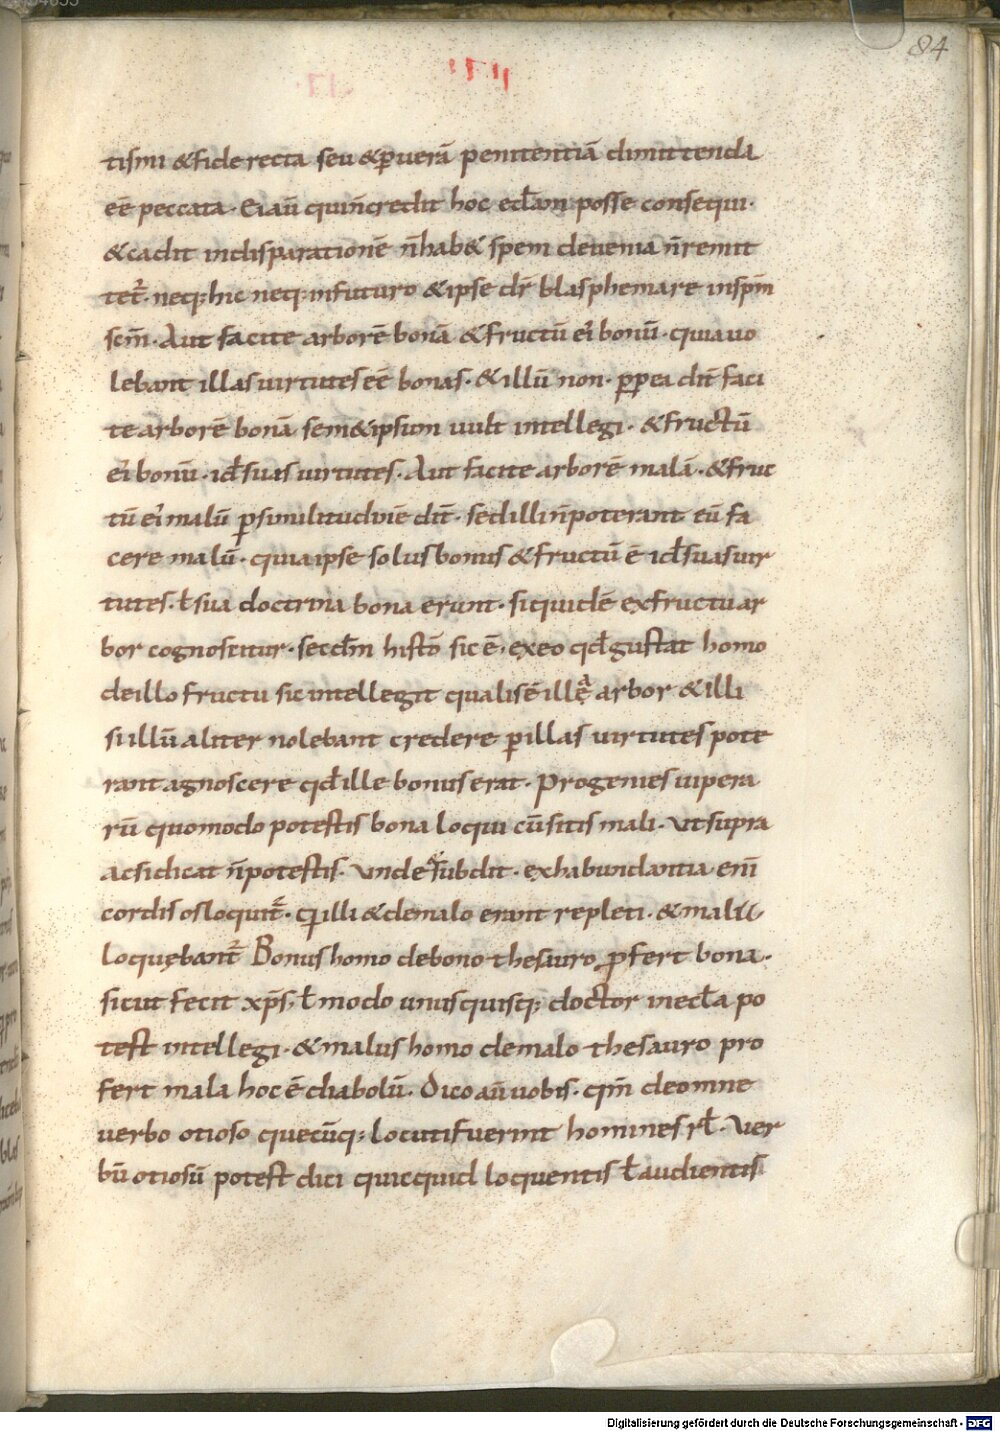 84
tismi & fide recta seu & p̱ uerā penitentiā dimittenda
eē peccata · Ei aū qui ñ credit hoc ecl̄am posse consequi ·
& cadit in disparationē ñ hab& spem de uenia ñ remit
tet᷑ · neq; hic neq; in futuro & ipse dr̄ blasphemare in sp̄m
sc̄m · Aut facite arborē bonā & fructū ei᷒ bonū · quia uo
lebant illas uirtutes eē bonas · & illū non · p̱p̱ea dix̄ faci
te arborē bonā sem&ipsum uult intellegi · & fructū
ei᷒ bonū · id ē suas uirtutes · Aut facite arborē malā · & fruc
tū ei᷒ malū p̱ similitudinē dix̄ · sed illi ñ poterant eū fa
cere malū · quia ipse solus bonus & fructū ē id ē suas uir
tutes · ł sua doctrina bona erunt · siquidē ex fructu ar
bor cognoscitur · secđm histō sic ē · ex eo qđ gustat homo
de illo fructu sic intellegit qualis ē illa arbor & illi
si illū aliter nolebant credere p̱ illas uirtutes pote
rant agnoscere qđ ille bonus erat · Progenies uipera
rū quomodo potestis bona loqui cū sitis mali · Ut supra
ac si dicat ñ potestis · Unde subdit · ex habundantia enī
cordis os loquit᷑ · Q̱ illi & de malo erant repleti · & mali
loquebant᷑ Bonus homo de bono thesauro p̱fert bona ·
sicut fecit xp̄s · ł modo unusquisq; doctor in ecl̄a po
test intellegi · & malus homo de malo thesauro pro
fert mala hoc ē diabolū · Dico aū uobis · qm̄ de omne
uerbo otioso quecūq; locuti fuerint homines rł · Uer
bū otiosū potest dici quicquid loquentis ł audientis
Digitalisierung gefördert durch die Deutsche Forschungsgemeinschaft - DFG